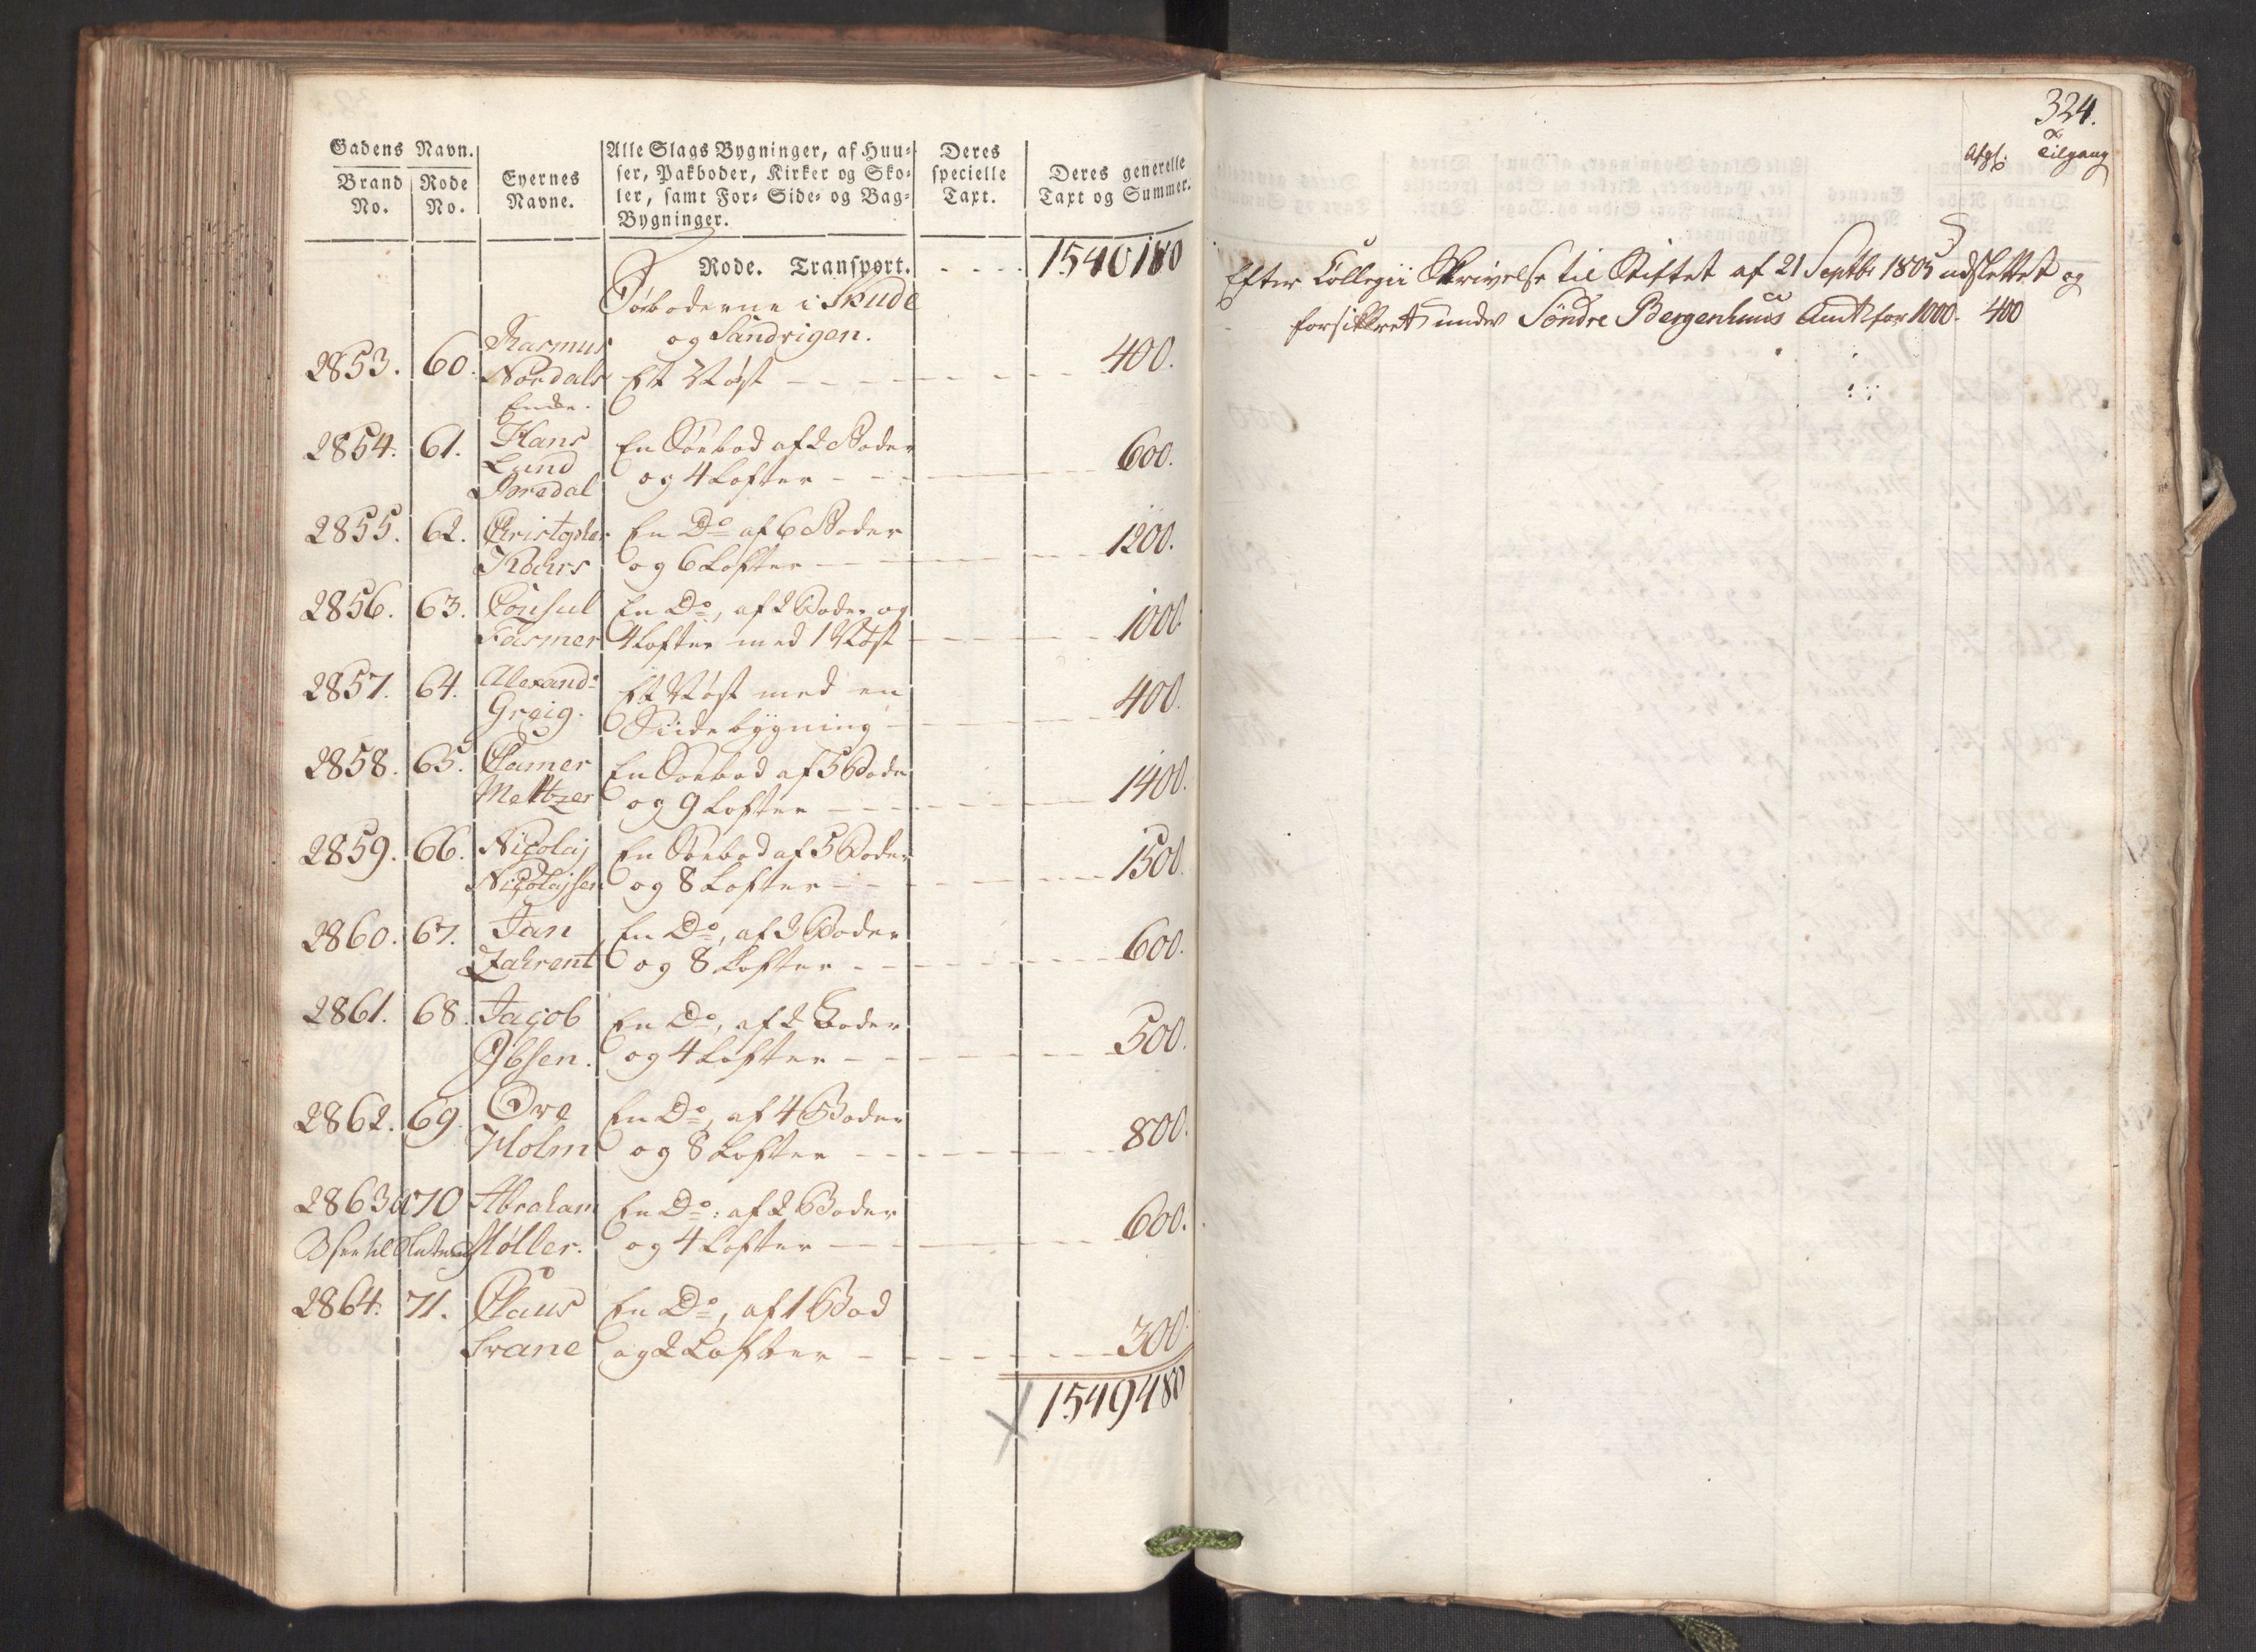 Gadens Navn.
Brand No.
Rode No.
Eyernes Navne.
Alle Slags Bygninger, af Huu-
ser, Pakboder, Kirker og Sko-
ler, samt For- Side- og Bag-
Bygninger.
Deres specielle Taxt.
Deres generelle
Taxt og Summer.
Rode. Transport. 1540180
Søeboderne i Skude
og Sandvigen.
2853. 60. Rasmus
Nordals Et Nøst 400.
Enke.
2854. 61. Hans En Søebod af 2 Boder
Lund og 4 Lofter 600.
Boredal
2855. 62. Christopher En Do af 6 Boder
Kahrs og 6 Lofter 1200.
2856. 63. Consul En Do, af 2 Boder og
Fasmer 4 Lofter med 1 Nøst 1000.
2857. 64. Alexandr Et Nøst med en
Greig. Siidebygning 400.
2858. 65. Clamer En Søebod af 5 Boder
Meltzer og 9 Lofter 1400.
2859. 66. Nicolaj En Søebod af 5 Boder
Nicolajsen og 8 Lofter 1500.
2860. 67. Jan En Do, af 2 Boder
Zahrent og 8 Lofter 600.
2861. 68. Jacob En Do, af 2 Boder
Ibsen. og 4 Lofter 500.
2862. 69. Ove En Do, af 4 Boder
Holm og 8 Lofter 800.
2863 a 70 Abraham En Do: af 2 Boder
B see til Slutning Møller. og 4 Lofter 600.
2864. 71. Claus En Do, af 1 Bod
Svane og 2 Lofter 300.
1549480
324.
Afg. Tilgang
Efter Collegii Skrivelse til Stiftet af 21 Septbr 1805 udslettet og
forsikkret under Söndre Bergenhuus Amt for 1000. 400